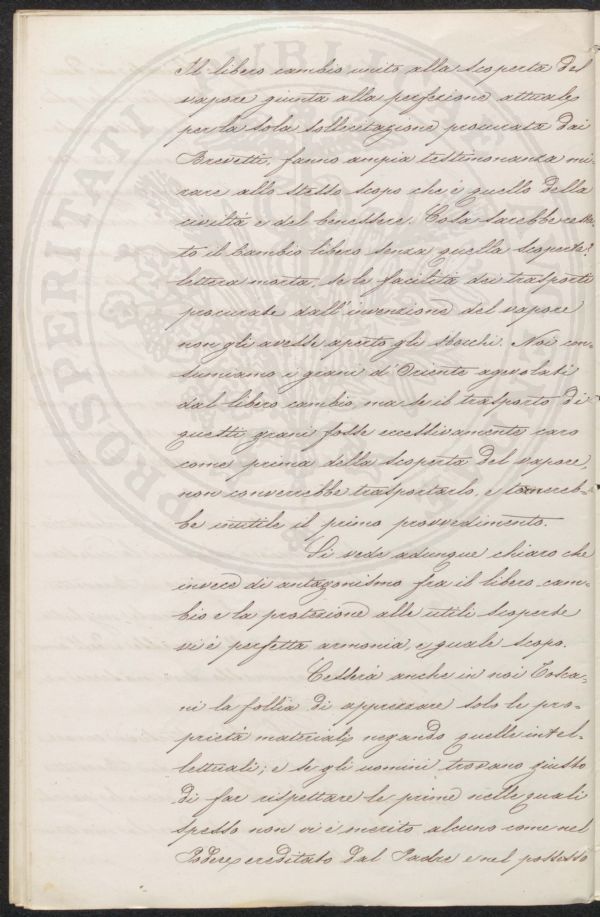 Il libero cambio unito alla scoperta del
vapore giunta alla perfezione attuale
per la sola sollecitazione procurata dai
Brevetti, fanno ampia testimonanza mi-
rare allo stesso scopo che è quello della
civiltà e del benessere. Cosa sarebbe resta-
to il Cambio libero senza quella scoperta?
lettera morta, se le facilità dei trasporti
procurate dall'invenzione del vapore
non gli avesse aperto gli sbocchi. Noi con-
sumiamo i grani d'Oriente agevolati
dal libero cambio, ma se il trasporto di
questi grani fosse eccessivamente caro
come prima della scoperta del vapore,
non converrebbe trasportarlo, e tornereb-
be inutile il primo provvedimento.
Si vede adunque chiaro che
invece di antagonismo fra il libero cam-
bio e la protezione alle utili scoperte
vi è perfetta armonia, e guale scopo.
Cesserà anche in noi Tosca-
ni la follia di apprezzare solo le pro-
prietà materiali, negando quelle intel-
lettuali; e se gli uomini trovano giusto
di far rispettare le prime nelle quali
spesso non vi è merito alcuno come nel
Podere ereditato dal Padre e nel possesso
PROSPERITATI PUBLICAE